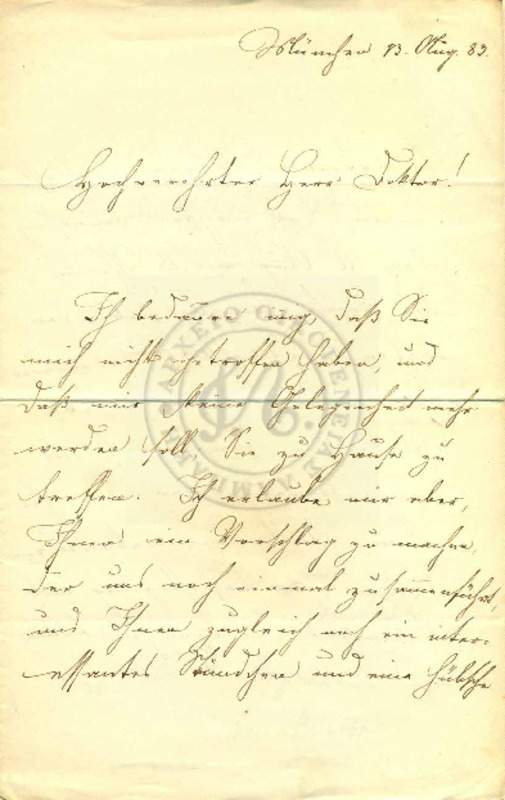 München 13. Aug. 83.
Hochverehrter Herr Doktor!
Ich bedaure mich, daß Sie
mich nicht getroffen haben, und
daß mir keine Gelegenheit mehr
werden soll, Sie zu Hause zu
treffen. Ich erlaube mir aber,
Ihnen ein Vorschlag zu machen,
der uns noch einmal zusammenführt,
und Ihnen zugleich noch ein inter-
essantes Stündchen und eine hübsche
ΑΡΧΕΙΟ ΟΙΚΟΓΕΝΕΙΑΣ